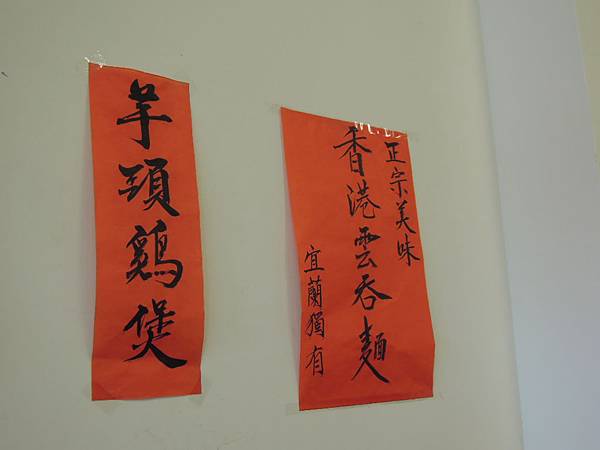 正宗美味
香港雲吞麵
宜蘭獨有
芋頭鷄煲